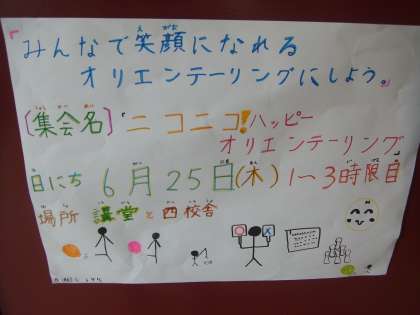 『みんなで笑顔になれる
オリエンテーリングにしよう。』
〔集会名〕『ニコニコ!ハッピー
オリエンテーリング
日にち 6月25日(木) 1〜3時限目
場所 講堂と西校舎